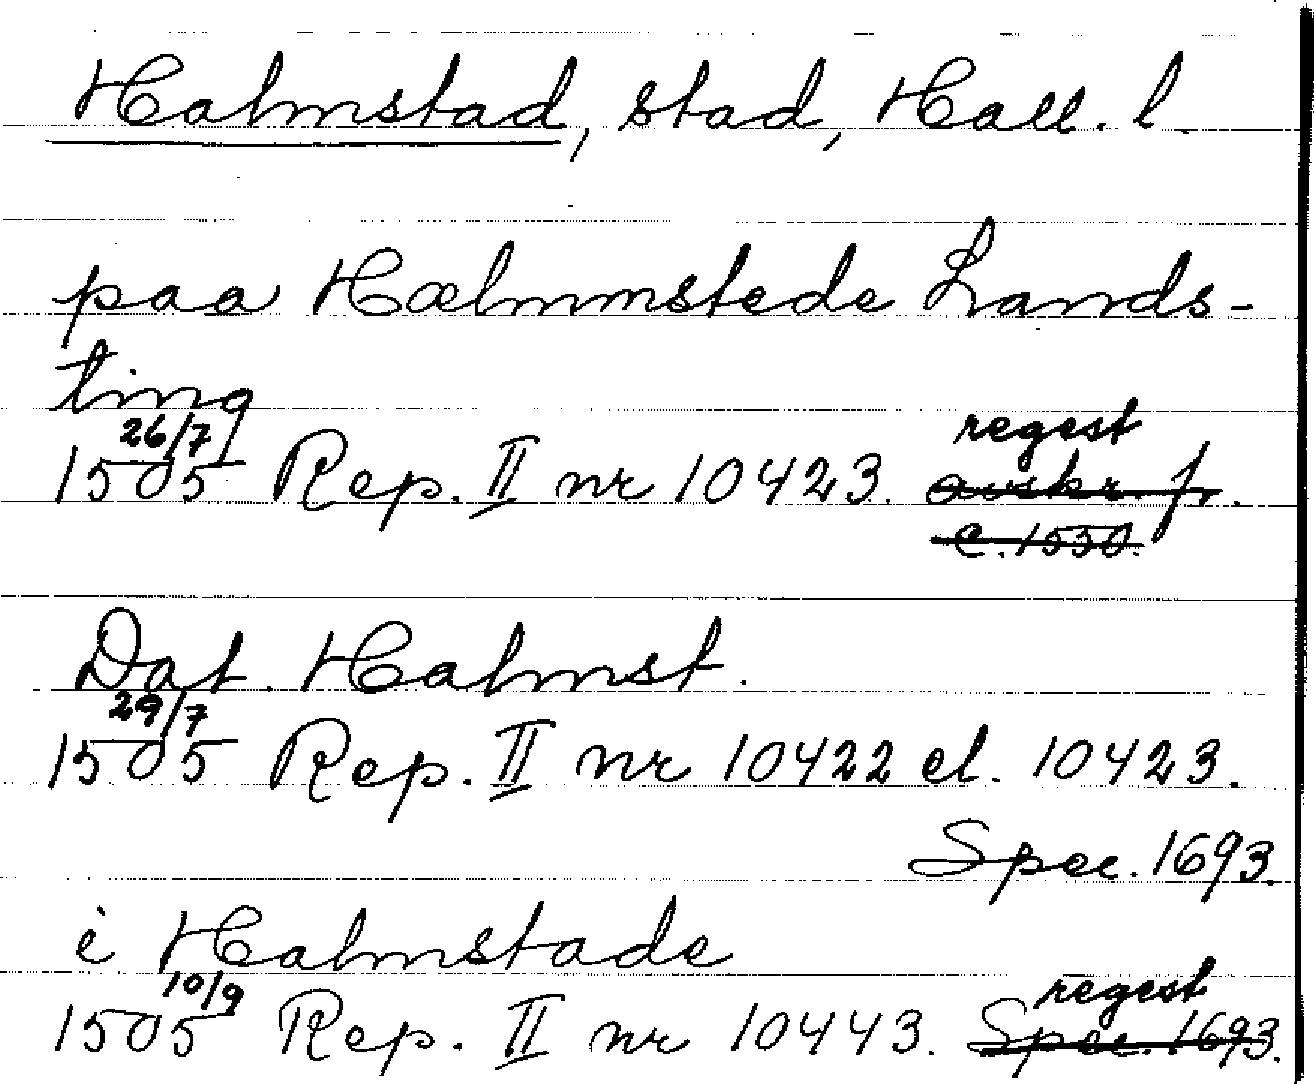 Halmstad, stad, Hall. l.
paa Hælmmstede Lands-
ting
26/7 regest
1505 Rep. II nr 10423. avskr. fr.
c. 1550.
Dat. Halmst.
29/7
1505 Rep. II nr 10422 el. 10423.
Spec. 1693.
i Halmstade
10/9 regest
1505 Rep. II nr 10443. Spec. 1693.